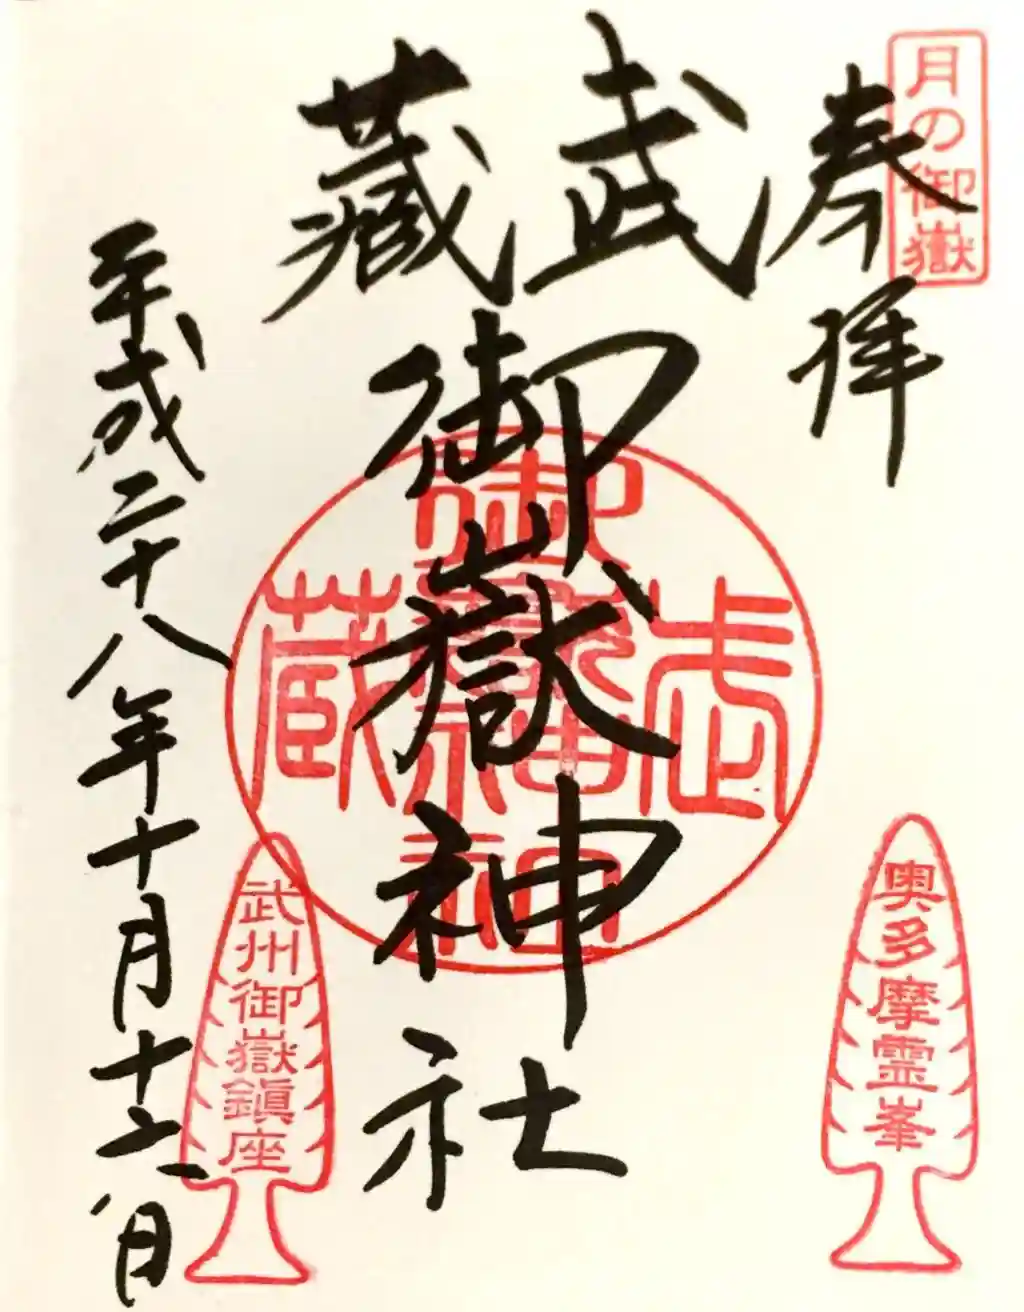 月の御嶽
奉拝
武蔵
御嶽神社
武蔵
御嶽神社
平成二十八年十月十六日
奥多摩霊峯
武州御嶽鎮座